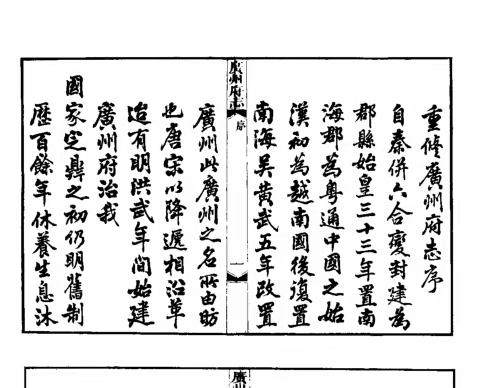 重修廣州府志序
自秦併六合變封建為
郡縣始皇三十三年置南
海郡為粤通中國之始
漢初為越南國後復置
南海吴黄武五年改置
廣州府志
序
一
廣州此廣州之名所由昉
也唐宋以降遞相沿革
迨有明洪武年間始建
廣州府治我
國家定鼎之初仍明舊制
歷百餘年休養生息沐